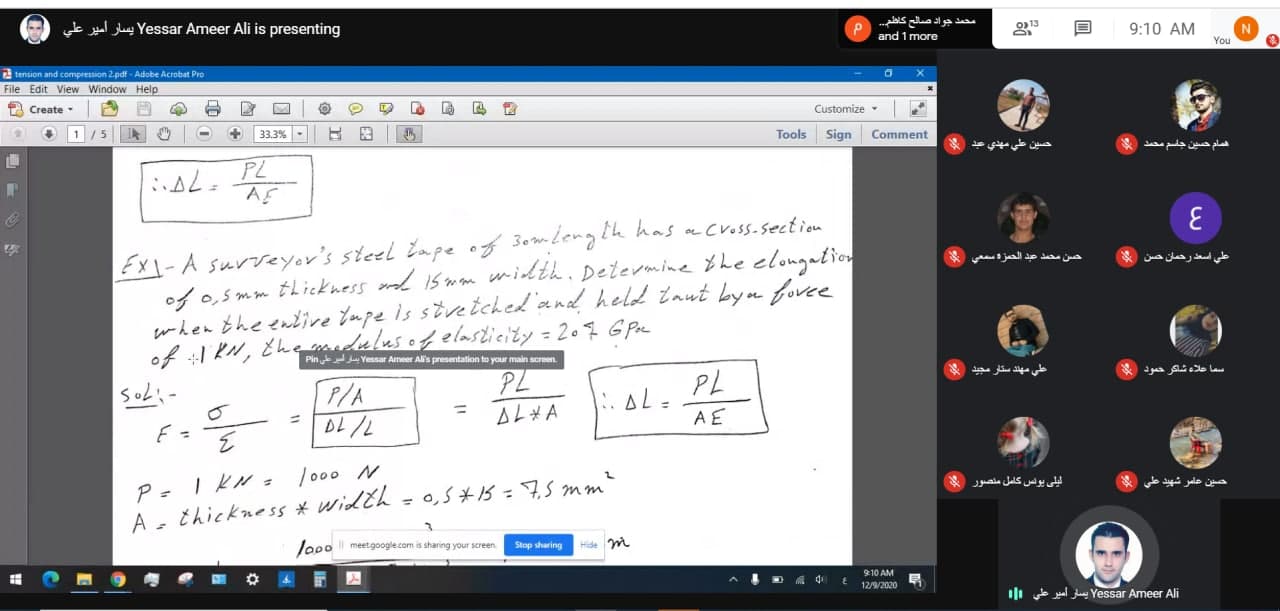 يسار أمير علي Yessar Ameer Ali is presenting
محمد جواد صالح كاظم...
and 1 more
13
9:10 AM
You
N
tension and compression 2.pdf - Adobe Acrobat Pro
File Edit View Window Help
Create
Customize
1 / 5
33.3%
Tools Sign Comment
∴ ΔL = PL / AE
Ex1 - A surveyor's steel tape of 30m length has a cross-section
of 0,5mm thickness and 15mm width. Determine the elongation
when the entire tape is stretched and held taut by a force
of 1 KN, the modulus of elasticity = 207 GPa
Pin يسار أمير علي Yessar Ameer Ali's presentation to your main screen.
Sol:-
E = σ / ε = P/A / ΔL/L = PL / ΔL*A ∴ ΔL = PL / AE
P = 1 KN = 1000 N
A = thickness * width = 0,5 * 15 = 7,5 mm²
1000
meet.google.com is sharing your screen. Stop sharing Hide
m
9:10 AM
12/9/2020
حسين علي مهدي عبد
همام حسين جاسم محمد
حسن محمد عبد الحمزه سمعي
ع
علي اسعد رحمان حسن
علي مهند ستار مجيد
سما علاء شاكر حمود
ليلى يونس كامل منصور
حسين عامر شهيد علي
يسار أمير علي Yessar Ameer Ali